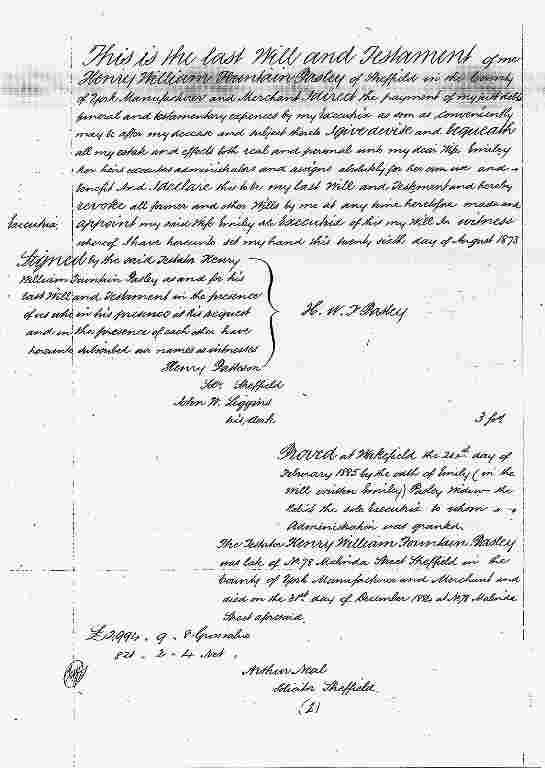 This is the last Will and Testament of me
Henry William Fountain Pasley of Sheffield in the County
of York Manufacturer and Merchant I direct the payment of my just debts
funeral and testamentary expences by my Executrix as soon as conveniently
may be after my decease and subject thereto I give devise and bequeath
all my estate and effects both real and personal unto my dear Wife Emiley
her heirs executors administrators and assigns absolutely for her own use and
benefit And I declare this to be my last Will and Testament and hereby
revoke all former and other Wills by me at any time heretofore made and
Executrix. appoint my said Wife Emiley sole Executrix of this my Will In witness
whereof I have hereunto set my hand this twenty sixth day of August 1873
Signed by the said Testator Henry
William Fountain Pasley as and for his
last Will and Testament in the presence
of us who in his presence at his request
and in the presence of each other have
hereunto subscribed our names as witnesses
H. W. F Pasley
Henry Patteson
Solr. Sheffield
John W. Liggins
his Clerk.
3 fos
Proved at Wakefield the day of
February 1885 by the oath of Emily (in the
Will written Emiley) Pasley Widow the
Relict the sole Executrix to whom
Administration was granted.
The Testator Henry William Fountain Pasley
was late of No. 78 Malinda Street Sheffield in the
County of York Manufacturer and Merchant and
died on the 31st day of December 1884 at No. 78 Malinda
Street aforesaid.
£2,994 . 9 . 8 Gross value
821 . 2 . 4 Net.
Arthur Neal
Solicitor Sheffield.
(1)